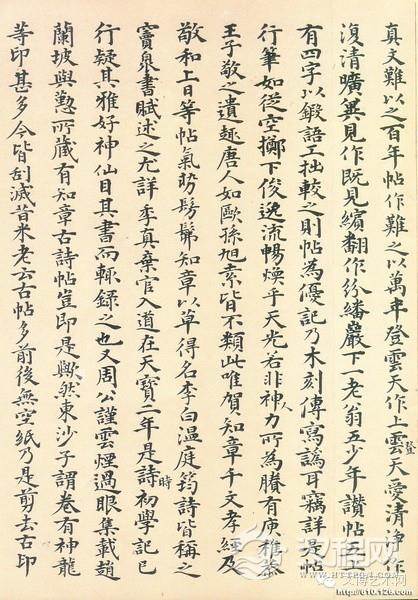 真夫難以之百年帖作難之以萬年登雲天作上登雲天愛清淨作
復清曠冀見作既見繽翻作紛繙巖下一老翁五少年讚帖上
有四字以鍛語工拙較之則帖為優記乃木刻傳寫譌耳竊詳是帖
行筆如從空擲下俊逸流暢煥乎天光若非神人力所為賸有庾稚恭
王子敬之遺趣唐人如歐孫旭素皆不類此唯賀知章千文孝經及
敬和上日等帖氣勢髣髴知章以草得名李白溫庭筠詩皆稱之
竇臮書賦述之尤詳季真棄官入道在天寶二年是時詩初學記已
行疑其雅好神仙目其書而輒錄之也又周公謹雲煙過眼集載趙
蘭坡與懃所藏有知章古詩帖豈即是歟然東沙子謂卷有神龍
等印甚多今皆刮滅昔米老云古帖多前後無空紙乃是剪去古印